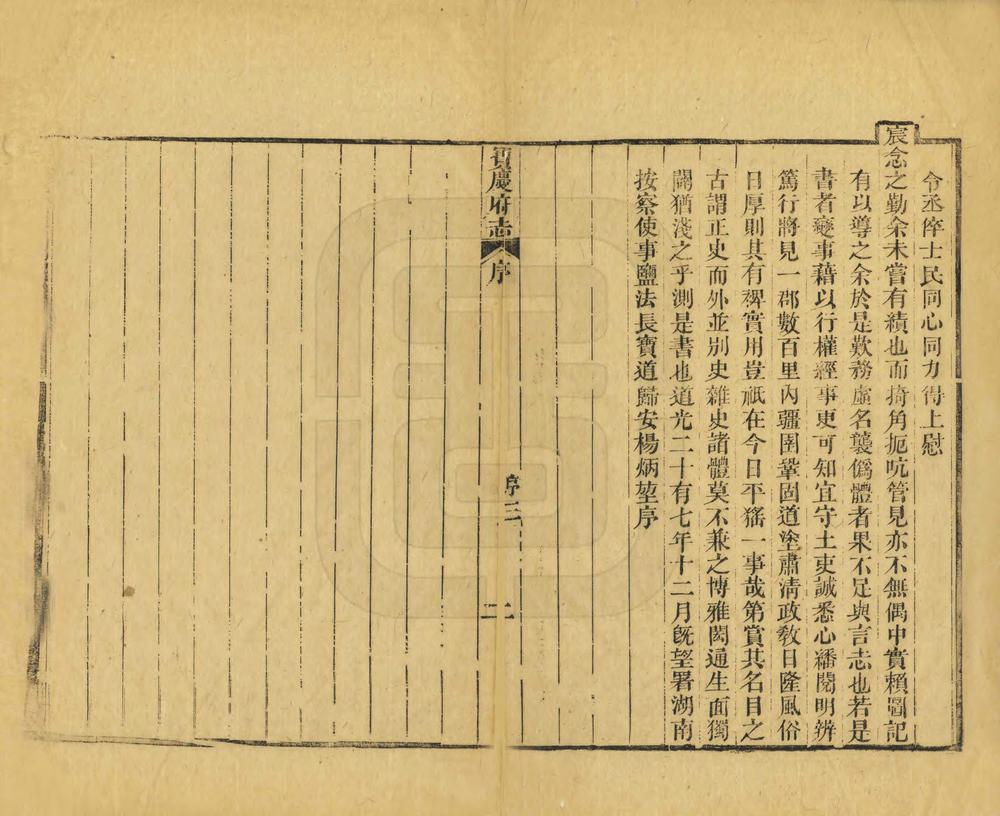 令丞倅士民同心同力得上慰
宸念之勤余未嘗有績也而掎角扼吭管見亦不無偶中實賴圖記
有以導之余於是歎務虛名襲僞體者果不足與言志也若是
書者變事藉以行權經事更可知宜守土吏誠悉心繙閱明辨
篤行將見一郡數百里內疆圉鞏固道塗肅清政教日隆風俗
日厚則其有裨實用豈祇在今日平猺一事哉第賞其名目之
古謂正史而外並別史雜史諸體莫不兼之博雅閎通生面獨
闢猶淺之乎測是書也道光二十有七年十二月旣望署湖南
按察使事鹽法長寶道歸安楊炳堃序
寶慶府志
序
序三
二